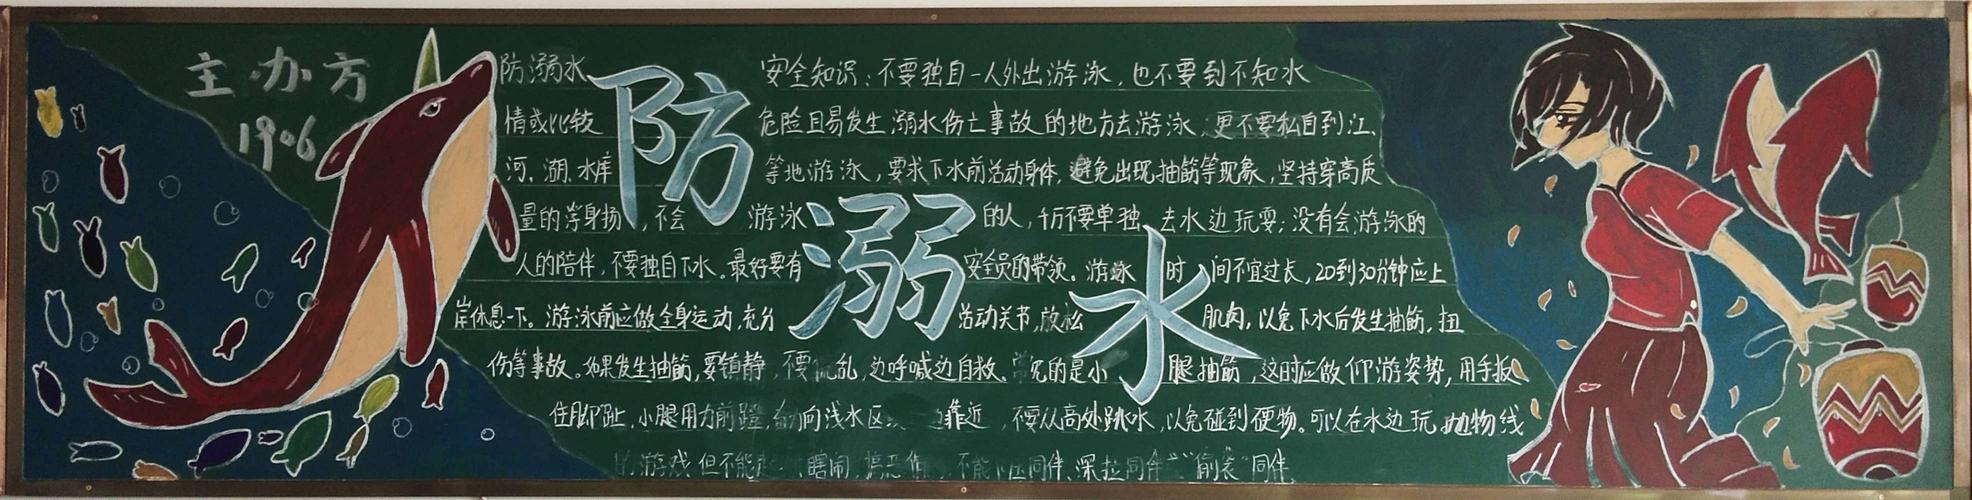 主办方
1906
防溺水
防溺水安全知识:不要独自一人外出游泳,也不要到不知水
情或比较危险且易发生溺水伤亡事故的地方去游泳,更不要私自到江、
河、湖、水库等地游泳,要求下水前活动身体,避免出现抽筋等现象,坚持穿高质
量的浮身扬,不会游泳的人,千万不要单独去水边玩耍;没有会游泳的
人的陪伴,不要独自下水。最好要有安全员的带领。游泳时间不宜过长,20到30分钟应上
岸休息一下。游泳前应做全身运动,充分活动关节,放松肌肉,以免下水后发生抽筋,扭
伤等事故。如果发生抽筋,要镇静,不要乱,边呼喊边自救。常见的是小腿抽筋,这时应做仰游姿势,用手扳
住脚趾,小腿用力前蹬,向浅水区靠近,不要从高处跳水,以免碰到硬物。可以在水边玩抛物线
的游戏但不能瞎闹,搞恶不能压同伴、深拉同伴""偷袭"同伴。